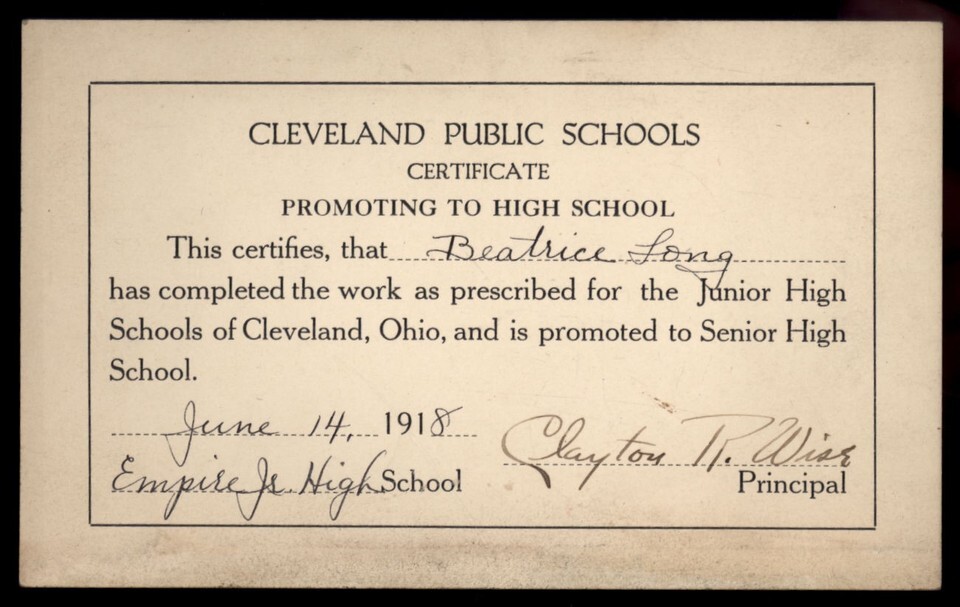 CLEVELAND PUBLIC SCHOOLS
CERTIFICATE
PROMOTING TO HIGH SCHOOL
This certifies, that Beatrice Long
has completed the work as prescribed for the Junior High
Schools of Cleveland, Ohio, and is promoted to Senior High
School.
June 14, 1918
Clayton R. Wise
Empire Jr. High School
Principal